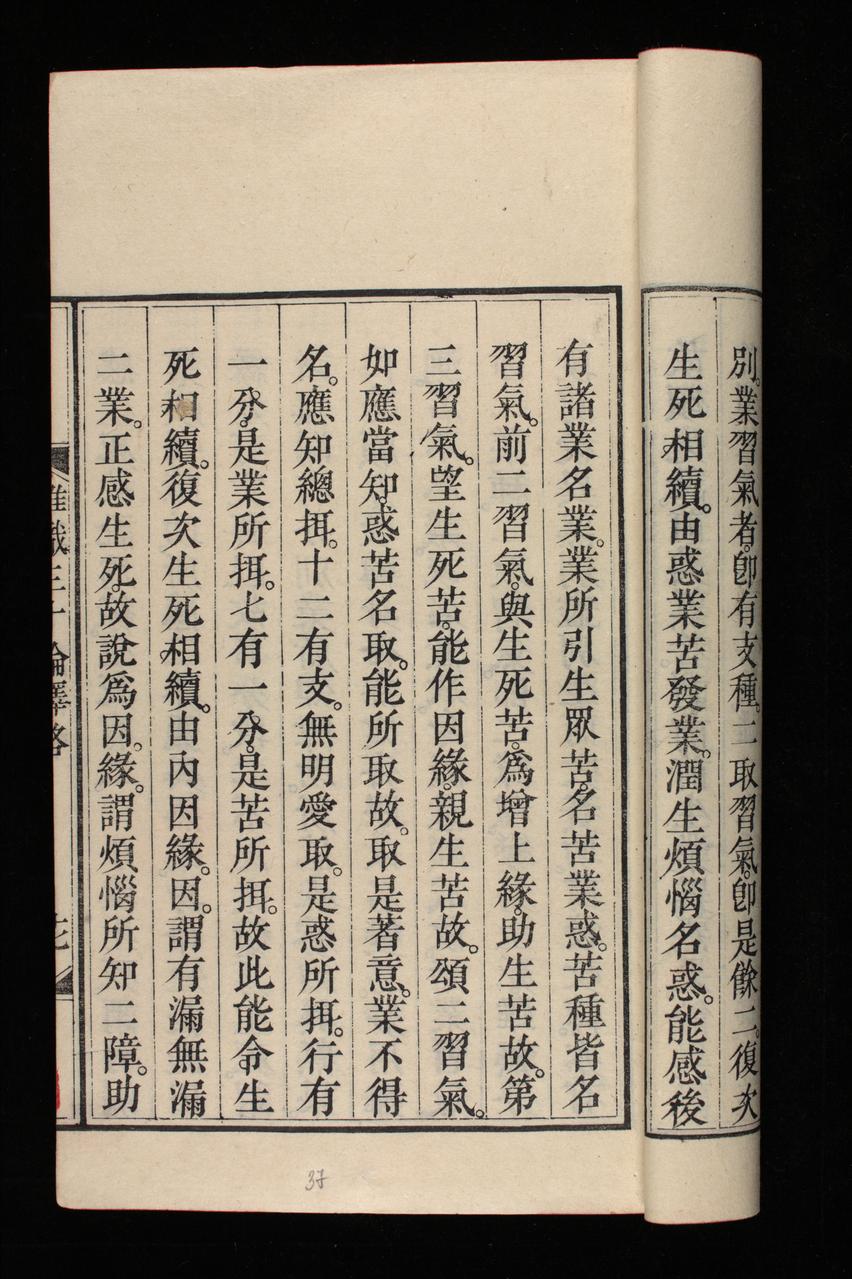 別。業習氣者。卽有支種。二取習氣。卽是餘二。復次
生死相續。由惑業苦發業。潤生煩惱名惑。能感後
有諸業名業。業所引生眾苦。名苦業惑。苦種皆名
習氣。前二習氣。與生死苦。爲增上緣。助生苦故。第
三習氣。望生死苦。能作因緣。親生苦故。頌二習氣。
如應當知。惑苦名取。能所取故。取是著意。業不得
名。應知總𢬵。十二有支。無明愛取。是惑所𢬵。行有
一分。是業所𢬵。七有一分。是苦所𢬵。故此能令生
死相續。復次生死相續。由內因緣。因。謂有漏無漏
二業。正感生死。故說爲因。緣。謂煩惱所知二障。助
唯識三十論釋略
37